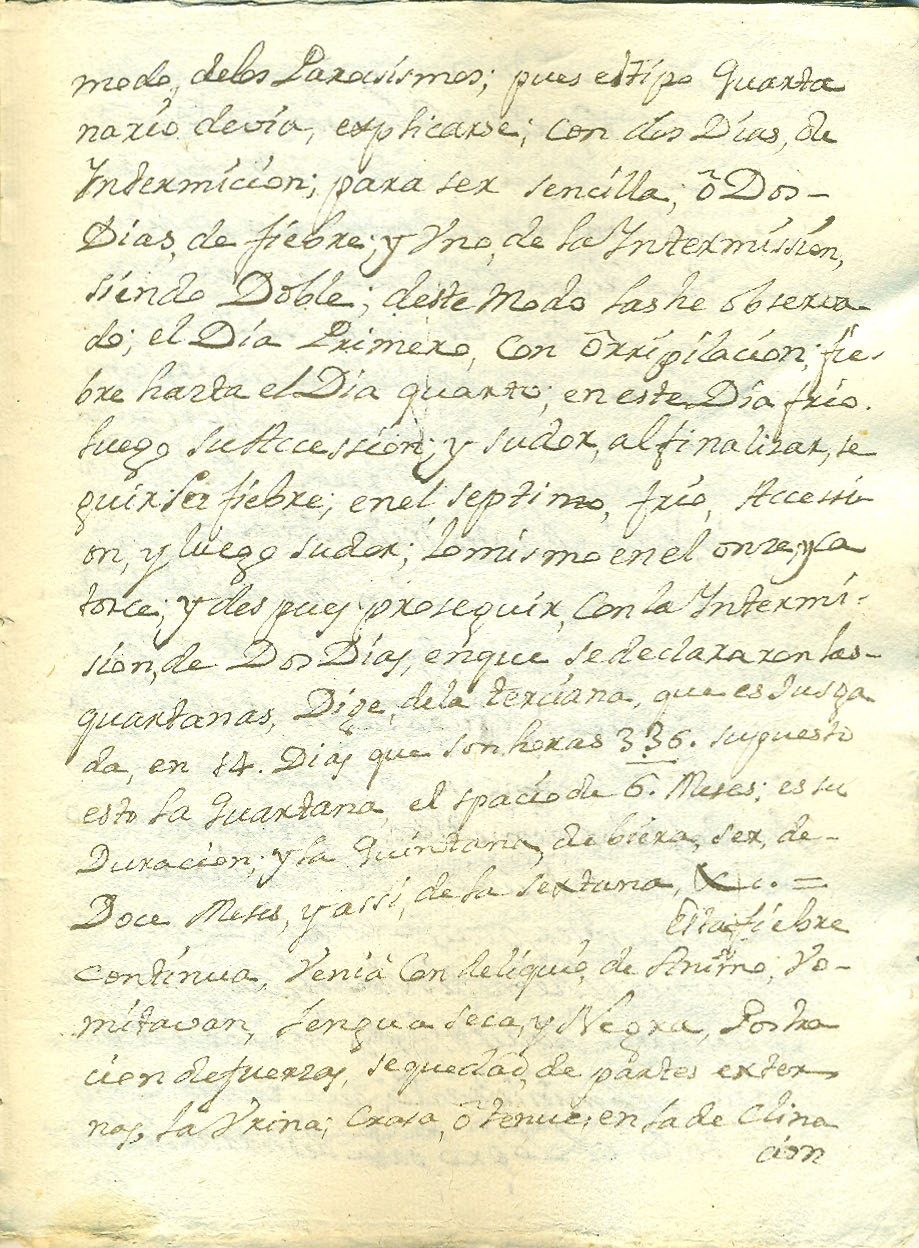 modo, delos Paroxismos; pues el tipo Quarta
nario devia, explicarse; con dos Dias, de
Yntermicion; para ser sencilla; ô Dos-
Dias, de fiebre; y Vno, de la Yntermission,
siendo Doble; deste Modo las he observa
do; el Dia Primero, con Ôrripilacion; fie-
bre hasta el Dia quarto; en este Dia frio.
luego su Accession; y sudor, al finalizar, se
guir la fiebre; enel septimo, frio, Accessi
on, y luego sudor; lo mismo en el onze, y ca
torce; y despues proseguir, con la Yntermi-
sion, de Dos Dias, enque se declararon las-
quartanas, Dige, dela terciana, que es Jusga
da, en 14. Dias que son horas 336. supuesto
esto la Quartana, el spacio de 6. Meses; es su
Duracion; y la Quintana, debiera, ser, de-
Doce Meses, y assi, de la Sextana, &c. =
Esta fiebre
continua, Venia Con deliquio, de Animo; Vo-
mitavan, Lengua seca, y Negra, Postra
cion de fuerzas, sequedad, de partes exter
nas, la Vrina; Crasa, ô tenue; en la de Clina
cion